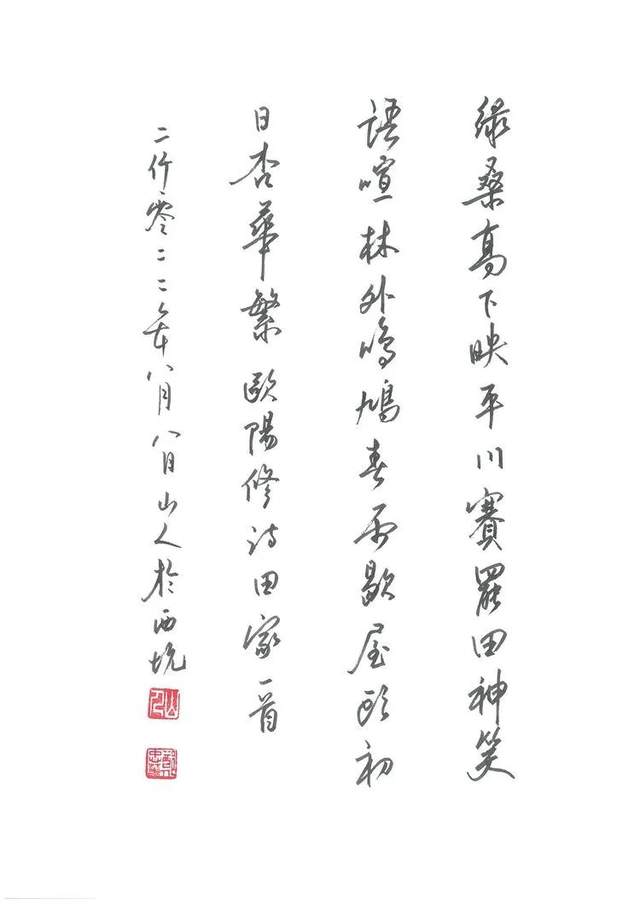 綠桑高下映平川賽罷田神笑
語喧林外鳴鳩春雨歇屋頭初
日杏華繁 歐陽修詩田家一首
二仟零二二年八月八日山人於西坑
山人